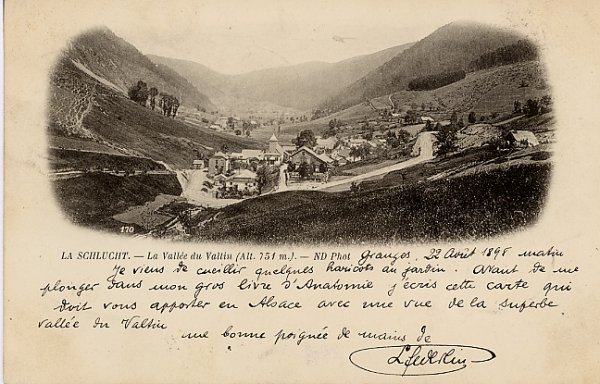 170
LA SCHLUCHT. — LA VALLÉE DU VALTIN (ALT. 751 M.). — ND PHOT Granges, 22 Août 1898 matin
Je viens de cueillir quelques haricots au jardin. Avant de me
plonger dans mon gros livre d'Anatomie j'écris cette carte qui
doit vous apporter en Alsace avec une vue de la superbe
vallée du Valtin une bonne poignée de mains de